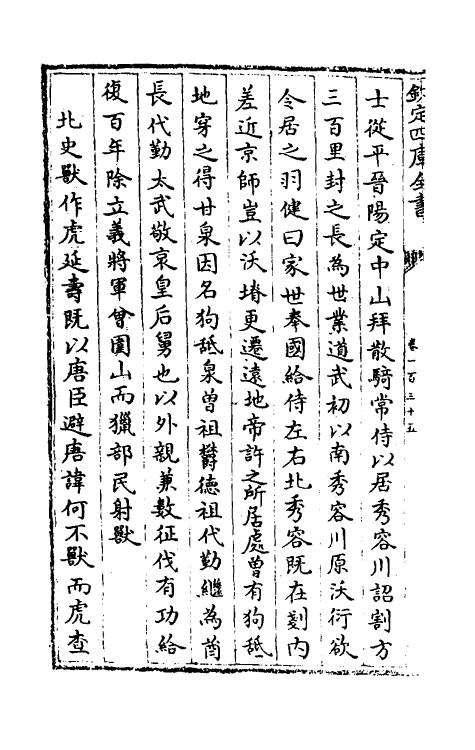 欽定四庫全書
卷一百三十五
士從平晉陽定中山拜散騎常侍以居秀容川詔割方
三百里封之長為世業道武初以南秀容川原沃衍欲
令居之羽健曰家世奉國給侍左右北秀容既在剗内
差近京師豈以沃塉更遷遠地帝許之所居處曾有狗舐
地穿之得甘泉因名狗舐泉曾祖鬱德祖代勤繼為酋
長代勤太武敬哀皇后舅也以外親兼數征伐有功給
復百年除立義將軍曾圍山而獵部民射獸
北史獸作虎延壽既以唐臣避唐諱何不獸而虎查